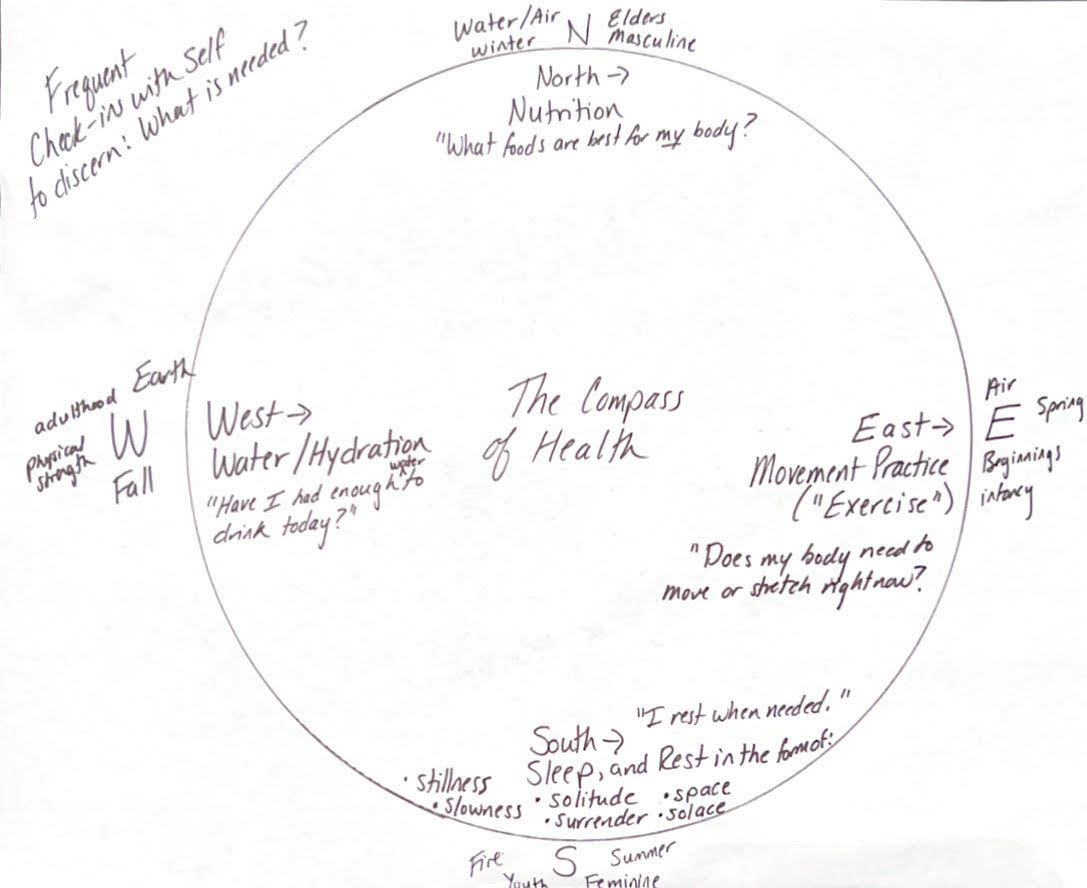 Frequent
Check-in with Self
to discern: What is needed?
Water/Air N Elders
winter masculine
North →
Nutrition
"What foods are best for my body?
adulthood Earth
W
physical
strength
Fall
West →
Water/Hydration
water
"Have I had enough to
drink today?"
The Compass
of Health
East →
Movement Practice
("Exercise")
"Does my body need to
move or stretch right now?
Air
E Spring
Beginnings
infancy
"I rest when needed."
South →
Sleep, and Rest in the form of:
• stillness
• slowness • solitude • space
• surrender • solace
Fire S Summer
Youth Feminine